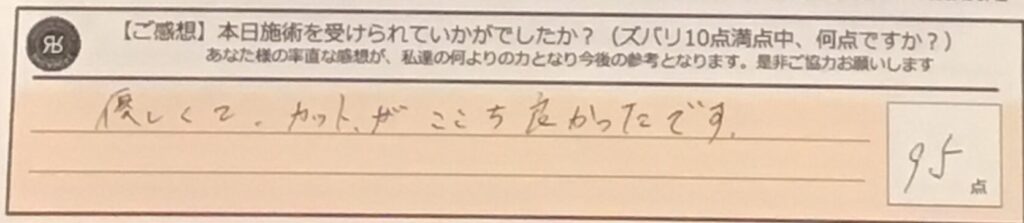 【ご感想】本日施術を受けられていかがでしたか？（ズバリ10点満点中、何点ですか？）
あなた様の率直な感想が、私達の何よりの力となり今後の参考となります。是非ご協力お願いします
優しくて、カットがここち良かったです。
95点